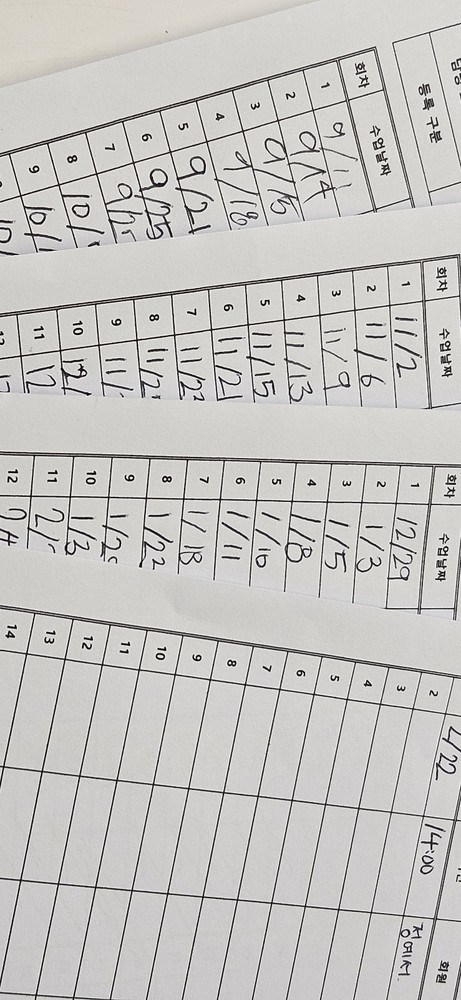 등록 구분
회차 수업날짜
1 9/11
2 9/14
3 9/15
4 9/18
5 9/21
6 9/25
7
8
9
회차 수업날짜
1 11/2
2 11/6
3 11/9
4 11/13
5 11/15
6 11/21
7
8
9
10
11
회차 수업날짜
1 12/29
2 1/3
3 1/5
4 1/8
5 1/10
6 1/11
7 1/18
8 1/22
9
10
11
12
회원
4/22 14:00 정예서
2
3
4
5
6
7
8
9
10
11
12
13
14